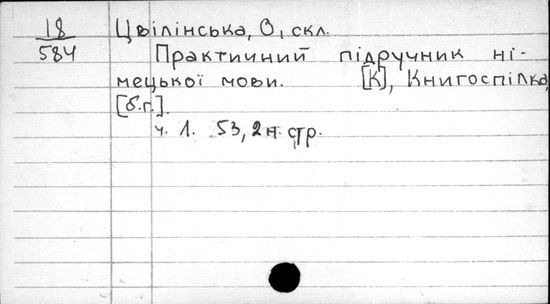 18
584
Цвілінська, О, скл.
Практичний підручник ні-
мецької мови. [К], Книгоспілка,
[б.г.].
ч. 1. 53, 2 н. стр.